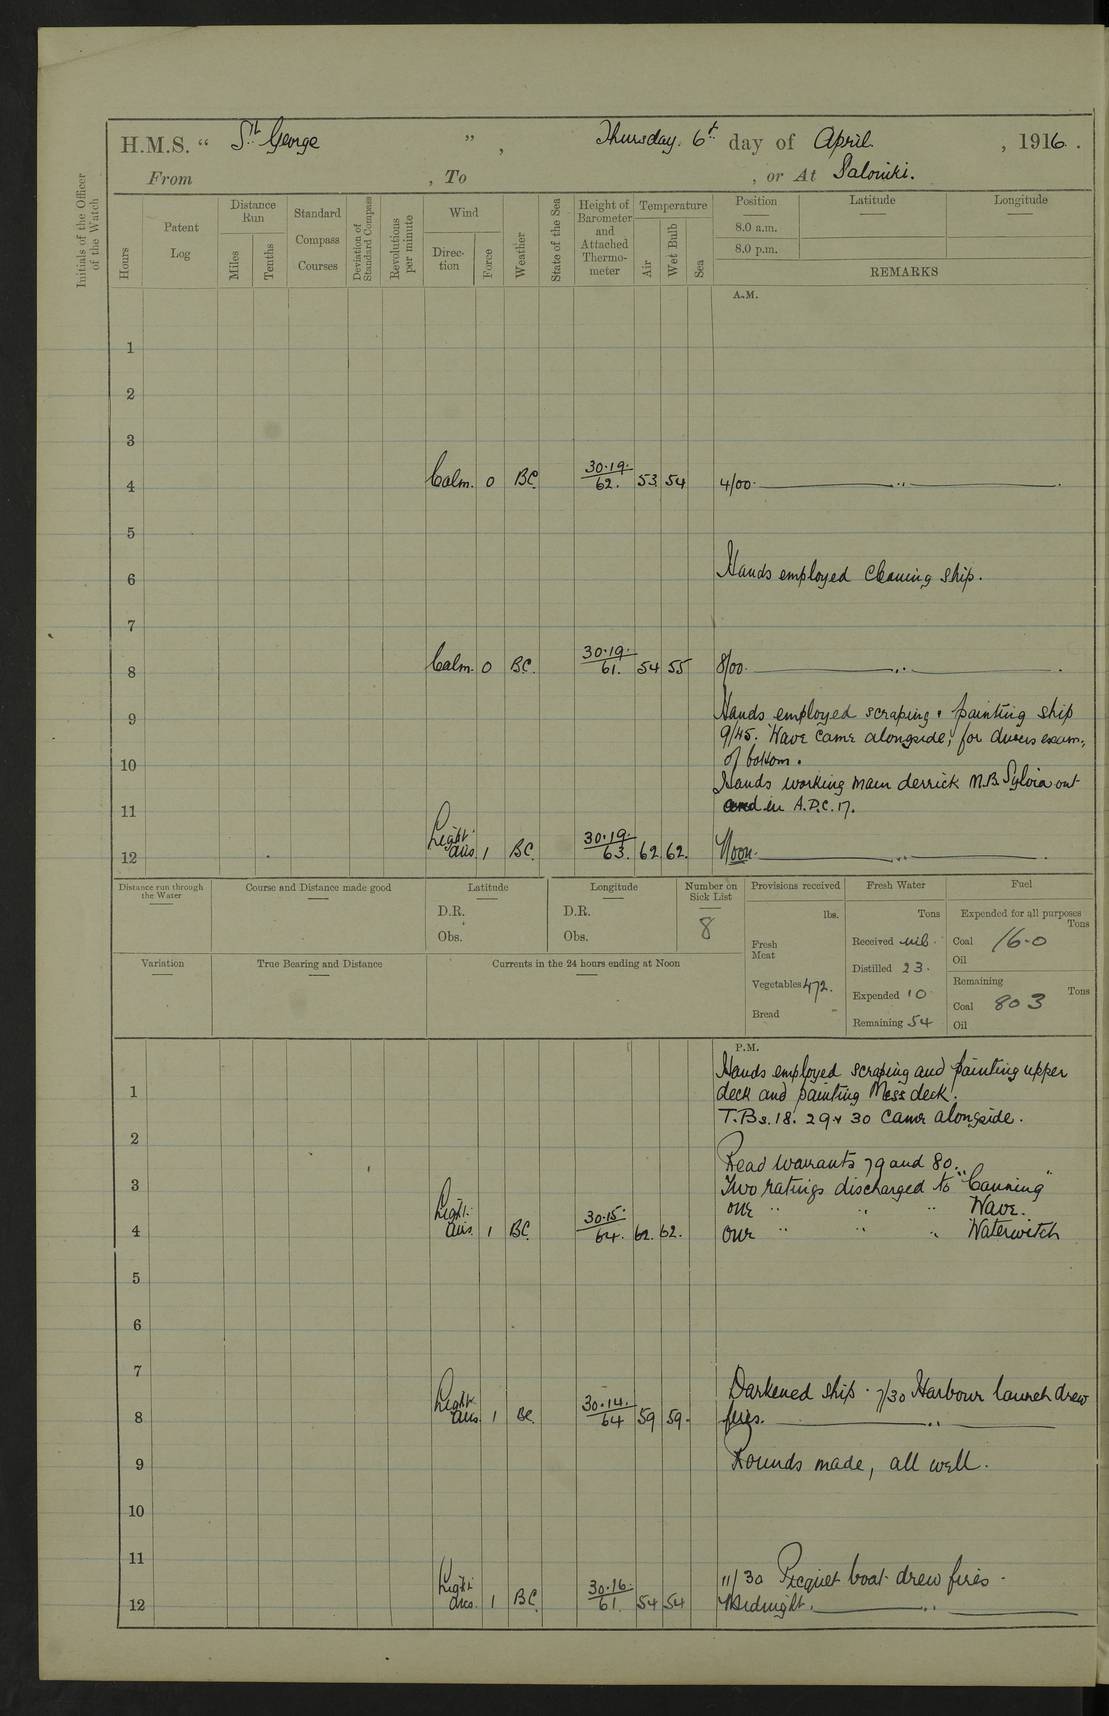 H.M.S. “ St. George ” , Thursday. 6th day of April. , 1916 .
From , To , or At Saloniki.
Initials of the Officer of the Watch
Hours
Patent Log
Distance Run
Miles
Tenths
Standard Compass Courses
Deviation of Standard Compass
Revolutions per minute
Wind
Direction
Force
Weather
State of the Sea
Height of Barometer and Attached Thermometer
Temperature
Air
Wet Bulb
Sea
Position Latitude Longitude
8.0 a.m.
8.0 p.m.
REMARKS
A.M.
1
2
3
4 Calm. 0 BC. 30.19. 62. 53 54 4/00. ..
5
6 Hands employed cleaning ship.
7
8 Calm. 0 BC. 30.19. 61. 54 55 8/00. ..
9 Hands employed scraping & painting ship
9/45. Wave came alongside, for divers exam:,
10 of bottom.
Hands working main derrick M.B. Sylvia out
11 and in A.P.C. 17.
12 Light airs 1 BC. 30.19. 63. 62 62. Noon. ..
Distance run through the Water
Course and Distance made good
Latitude
D.R.
Obs.
Longitude
D.R.
Obs.
Number on Sick List
8
Provisions received
lbs.
Fresh Meat
Vegetables 472.
Bread -
Fresh Water
Tons
Received nil.
Distilled 23.
Expended 10
Remaining 54
Fuel
Expended for all purposes
Tons
Coal 16.0
Oil
Remaining
Tons
Coal 803
Oil
Variation
True Bearing and Distance
Currents in the 24 hours ending at Noon
P.M.
Hands employed scraping and painting upper
1 deck and painting Mess deck.
T.Bs. 18. 29 & 30 came alongside.
2
Read warrants 79 and 80.
3 Two ratings discharged to "Canning"
one " " " Wave.
4 Light airs. 1 BC. 30.15 64. 62. 62. one " " " Waterwitch
5
6
7
Darkened ship. 7/30 Harbour launch drew
8 Light airs 1 BC. 30.14. 64 59 59. fires. ..
9 Rounds made, all well.
10
11
11/30 Picquet boat drew fires.
12 Light airs. 1 BC. 30.16. 61. 54 54 Midnight. ..